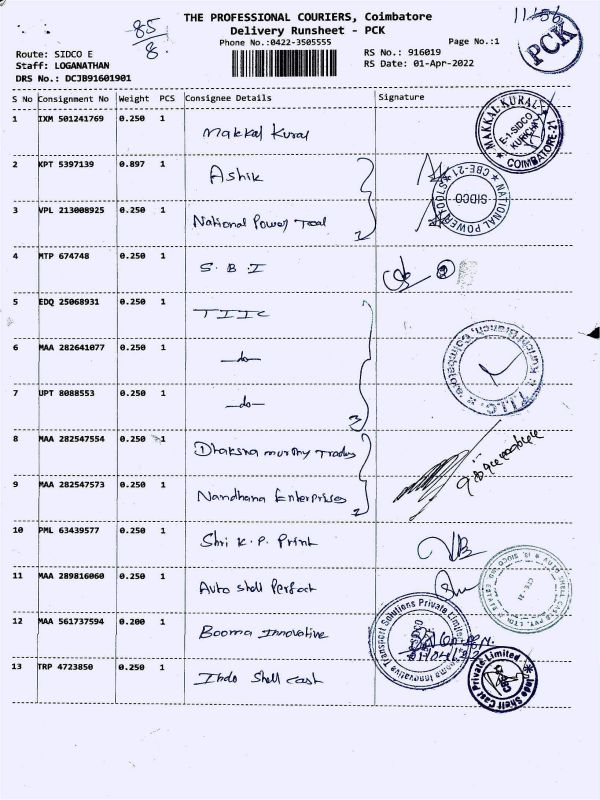 85/8
11-56
PCK
THE PROFESSIONAL COURIERS, Coimbatore
Delivery Runsheet - PCK
Phone No.:0422-3505555
Page No.:1
Route: SIDCO E
Staff: LOGANATHAN
DRS No.: DCJB91601901
RS No.: 916019
RS Date: 01-Apr-2022
S No Consignment No Weight PCS Consignee Details Signature
1 IXM 501241769 0.250 1 Makkal Kural
MAKKAL KURAL E-1-SIDCO KURICHI COIMBATORE-21
2 KPT 5397139 0.897 1 Ashik
3 VPL 213008925 0.250 1 National Power Tool 2
NATIONAL POWER TOOLS SIDCO CBE-21
4 MTP 674748 0.250 1 S.B.I
5 EDQ 25068931 0.250 1 TIIC
6 MAA 282641077 0.250 1 -do-
7 UPT 8088553 0.250 1 -do- 3
T.I.I.C. Kurichi Branch, Coimbatore
8 MAA 282547554 0.250 1 Dhaksna murthy Traders
9 MAA 282547573 0.250 1 Nandhana Enterprises 2
10 PML 63439577 0.250 1 Shri K.P. Print
11 MAA 289816060 0.250 1 Auto Shell Perfect
12 MAA 561737594 0.200 1 Booma Innovative
Booma Innovative Transport Solutions Private Limited
13 TRP 4723850 0.250 1 Indo Shell Cash
Indo Shell Cast Private Limited